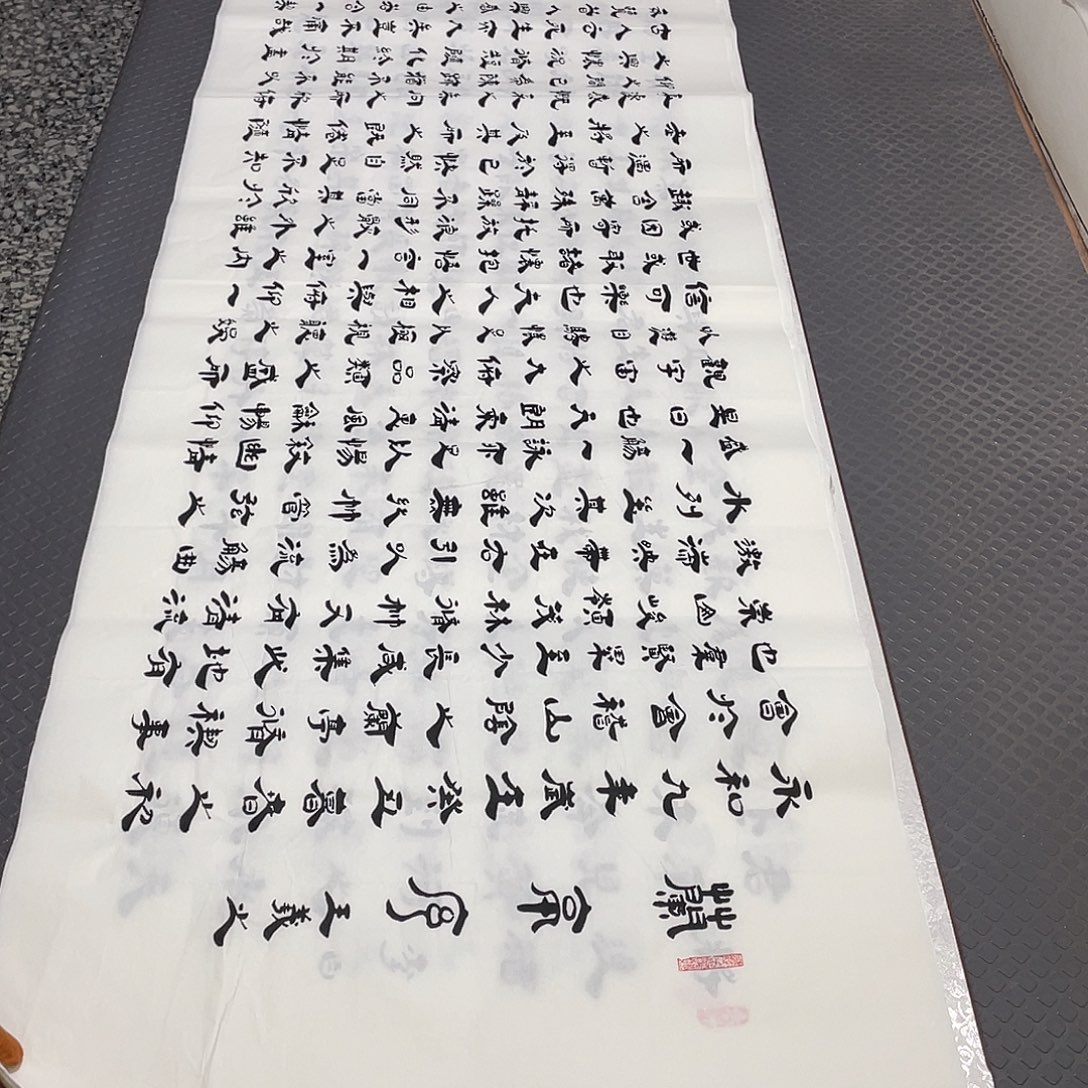 蘭亭序 王羲之
永和九年歲在癸丑暮春之初
會於會稽山陰之蘭亭脩禊事
也羣賢畢至少長咸集此地有
崇山峻領茂林脩竹又有清流
激湍映帶左右引以為流觴曲
水列坐其次雖無絲竹管弦之
盛一觴一詠亦足以暢敘幽情
是日也天朗氣清惠風和暢仰
觀宇宙之大俯察品類之盛所
以遊目騁懷足以極視聽之娛
信可樂也夫人之相與俯仰一
世或取諸懷抱悟言一室之內
或因寄所託放浪形骸之外雖
趣舍萬殊靜躁不同當其欣於
所遇暫得於己快然自足不知
老之將至及其所之既倦情隨
事遷感慨係之矣向之所欣俛
仰之閒已為陳跡猶不能不以
之興懷況脩短隨化終期於盡
古人云死生亦大矣豈不痛哉